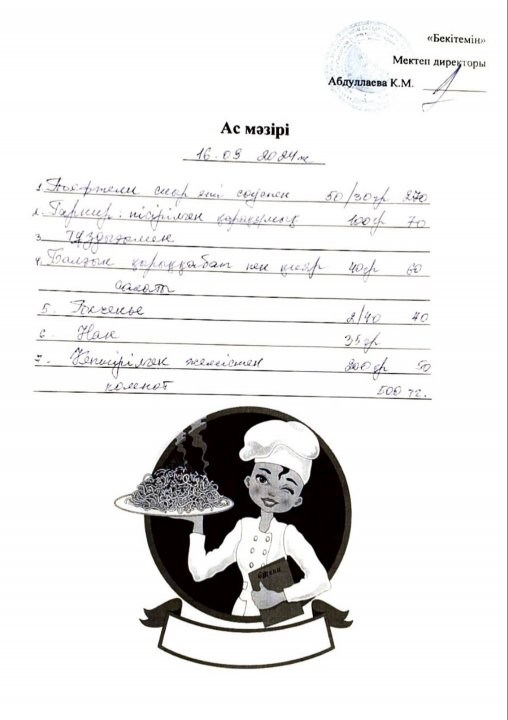 «Бекітемін»
Мектеп директоры
Абдуллаева К.М.
Ас мәзірі
16.09 2024ж
1. сиыр еті соуспен 50/30гр 270
2. Гарнир: пісірілген қарақұмық 100гр 70
3. тұздығымен
4. Балғын қырыққабат пен қияр 40гр 60
салаты
5. Печенье 2/40 40
6. Нан 35гр
7. Кептірілген жемістен 200гр 50
компот 500 тг.